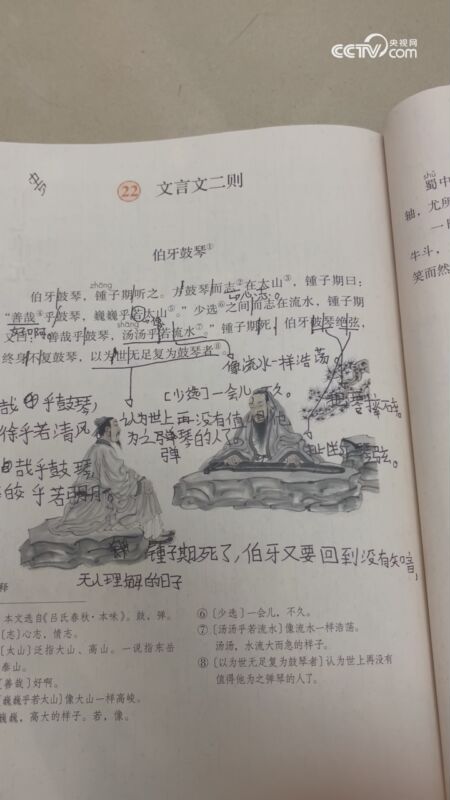 CCTV.com 央视网
22 文言文二则
伯牙鼓琴①
zhōng
伯牙鼓琴，锺子期听之。方鼓琴而志②在太山③，锺子期曰：
“善哉④乎鼓琴，巍巍乎若太山⑤。”少选⑥之间而志在流水，锺子期
心志。
好啊。
像
shāng
又曰：“善哉乎鼓琴，汤汤乎若流水⑦。”锺子期死，伯牙破琴绝弦，
终身不复鼓琴，以为世无足复为鼓琴者⑧。
像流水一样浩荡。
[少选]一会儿，不久。
哉乎鼓琴，
认为世上再没有值
徐乎若清风
为之弹琴的人了。
弹
哉乎鼓琴，
乎若明月。
弦。
锺子期死了，伯牙又要回到没有知音，
无人理解的日子
释
本文选自《吕氏春秋·本味》。鼓，弹。
[志]心志，情志。
[太山]泛指大山、高山。一说指东岳
泰山。
[善哉]好啊。
[巍巍乎若太山]像大山一样高峻。
巍巍，高大的样子。若，像。
⑥[少选]一会儿，不久。
⑦[汤汤乎若流水]像流水一样浩荡。
汤汤，水流大而急的样子。
⑧[以为世无足复为鼓琴者]认为世上再没有
值得他为之弹琴的人了。
shǔ
蜀中
轴，尤所
一日
牛斗，
笑而然